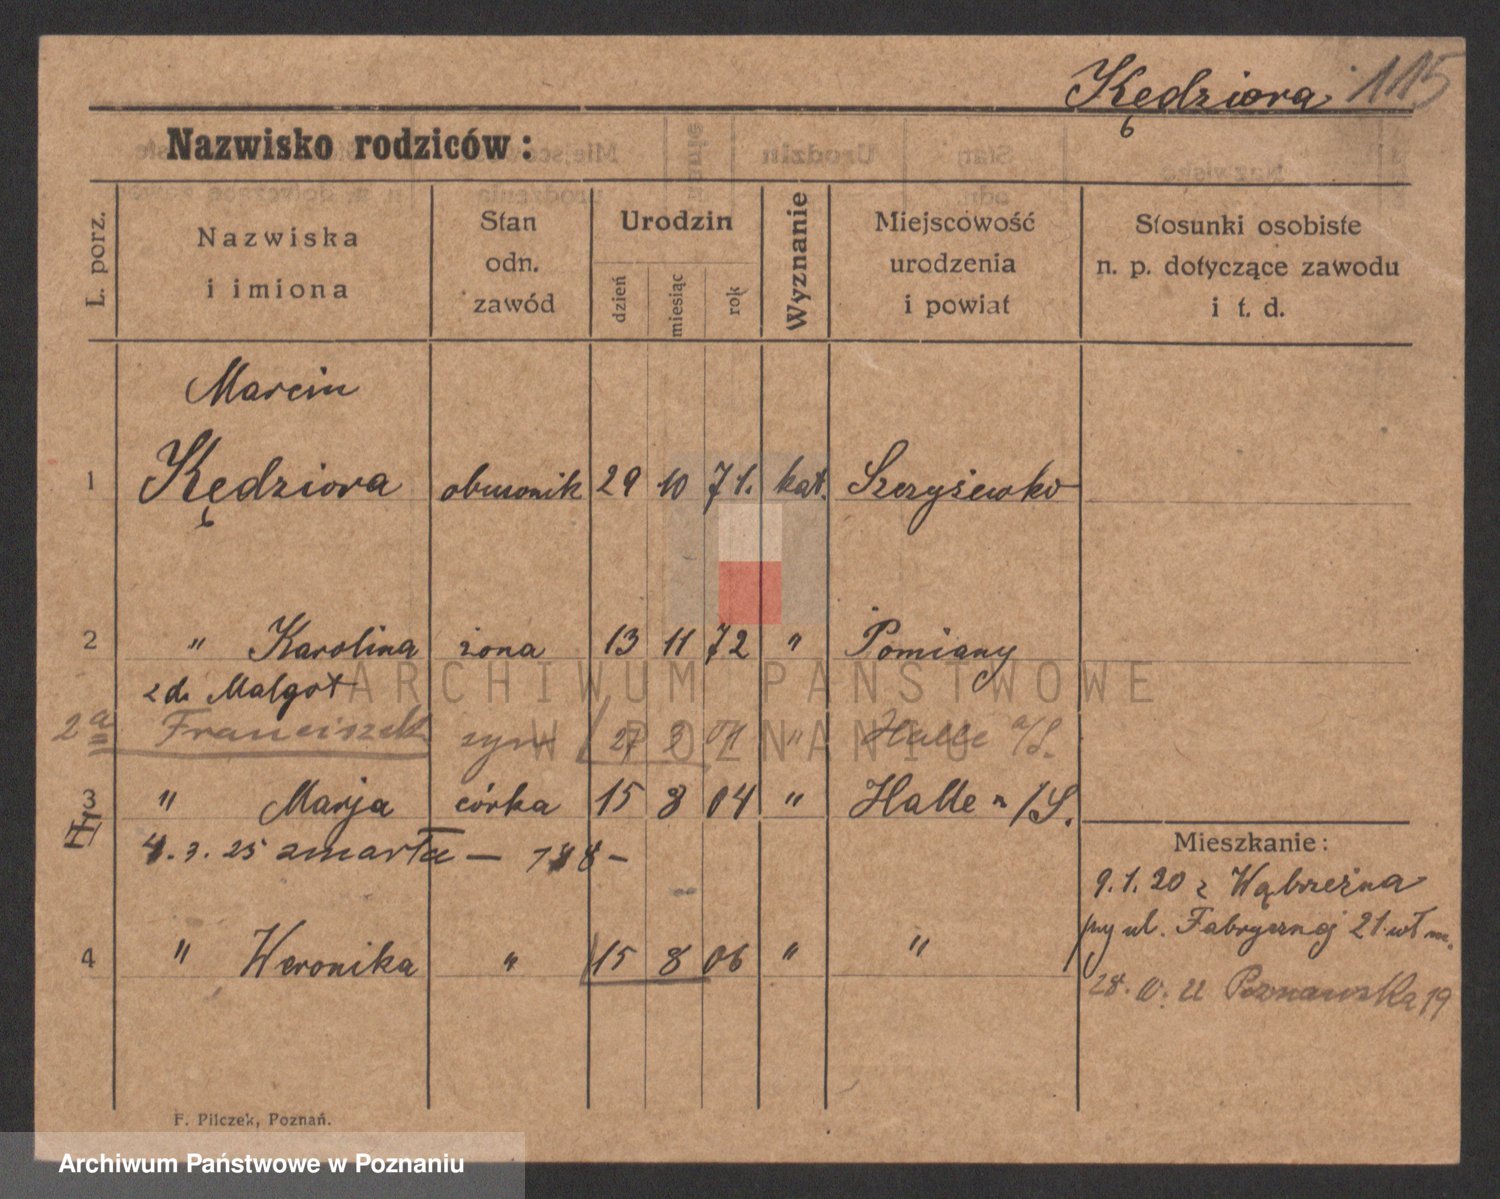 Kędziora 115
Nazwisko rodziców:
L. porz.
Nazwiska
i imiona
Stan
odn.
zawód
Urodzin
dzień
miesiąc
rok
Wyznanie
Miejscowość
urodzenia
i powiat
Stosunki osobiste
n. p. dotyczące zawodu
i t. d.
Marcin
1 Kędziora 29 10 71. kat. Szczyżewko
2 " Karolina żona 13 11 72 " Pomiany
zd. Malgot
2a Franciszek syn 27 3 01 " Halle a/S.
3 " Marja córka 15 8 04 " Halle a/S.
4. 3. 25 zmarła
4 " Weronika " 15 8 06 " "
Mieszkanie:
9.1.20 z Wąbrzeźna
przy ul. Fabrycznej 21
Poznańska 19
F. Pilczek, Poznań.
ARCHIWUM PAŃSTWOWE
W POZNANIU
Archiwum Państwowe w Poznaniu